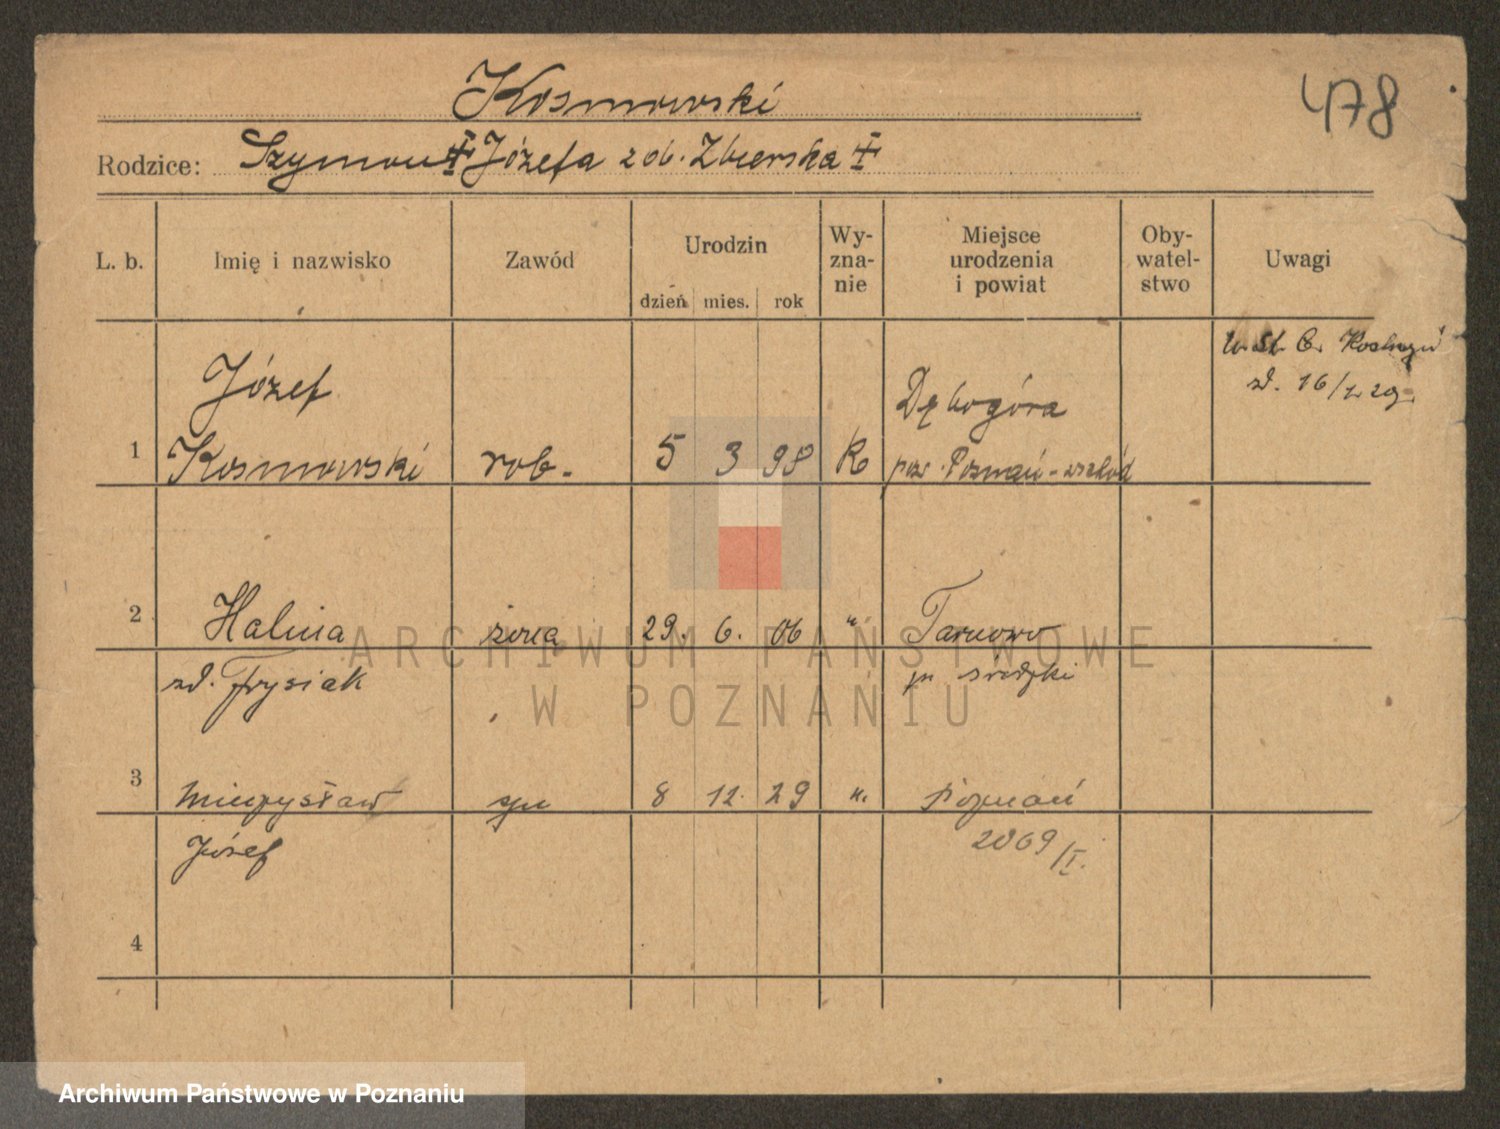 Kosmowski
478
Rodzice: Szymon + Józefa zob. Zbierska +
L. b. Imię i nazwisko Zawód Urodzin dzień mies. rok Wy-zna-nie Miejsce urodzenia i powiat Oby-watel-stwo Uwagi
zd. 16/1. 29.
1 Józef Kosmowski rob. 5 3 98 R Dębogóra pow. Poznań-wschód
2 Halina żona 29. 6. 06 " Tarnowo
zd. Frysiak p. średzki
3 Mieczysław syn 8 12. 29 " Poznań
Józef 2069/I.
4
ARCHIWUM PAŃSTWOWE
W POZNANIU
Archiwum Państwowe w Poznaniu